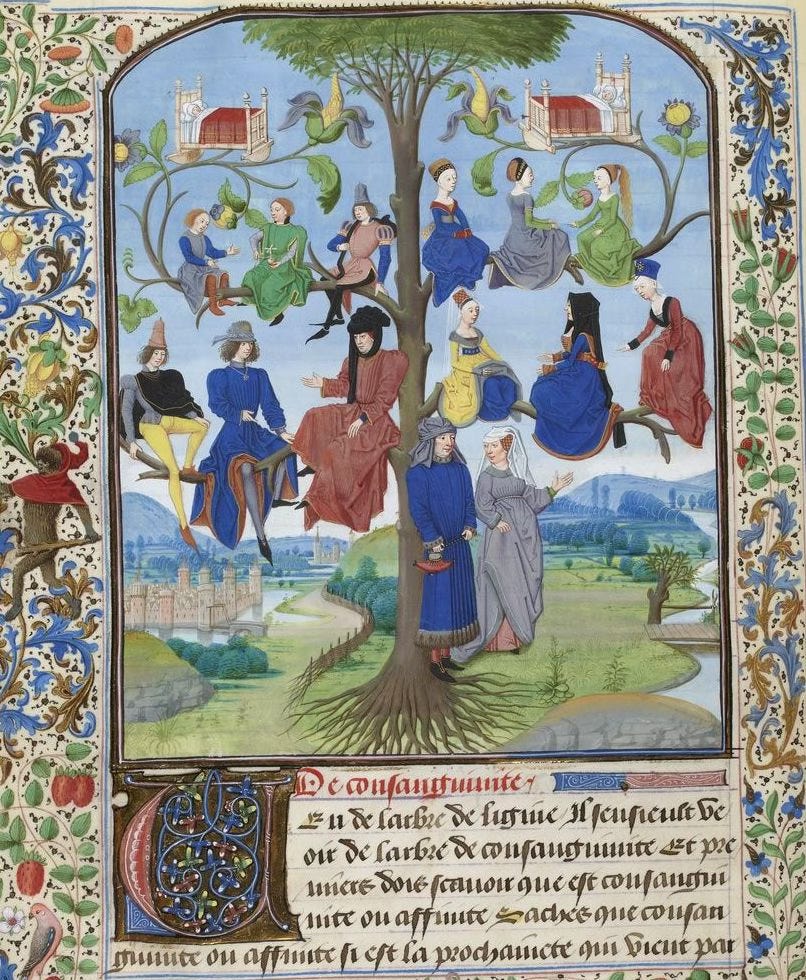 De consanguinite
Veu de larbre de ligine Il sensieult ve
oir de larbre de consanguinite Et pre
miers dois scavoir que est consangui
nite ou affinite Saches que consan
guinite ou affinite si est la prochainete qui vient par